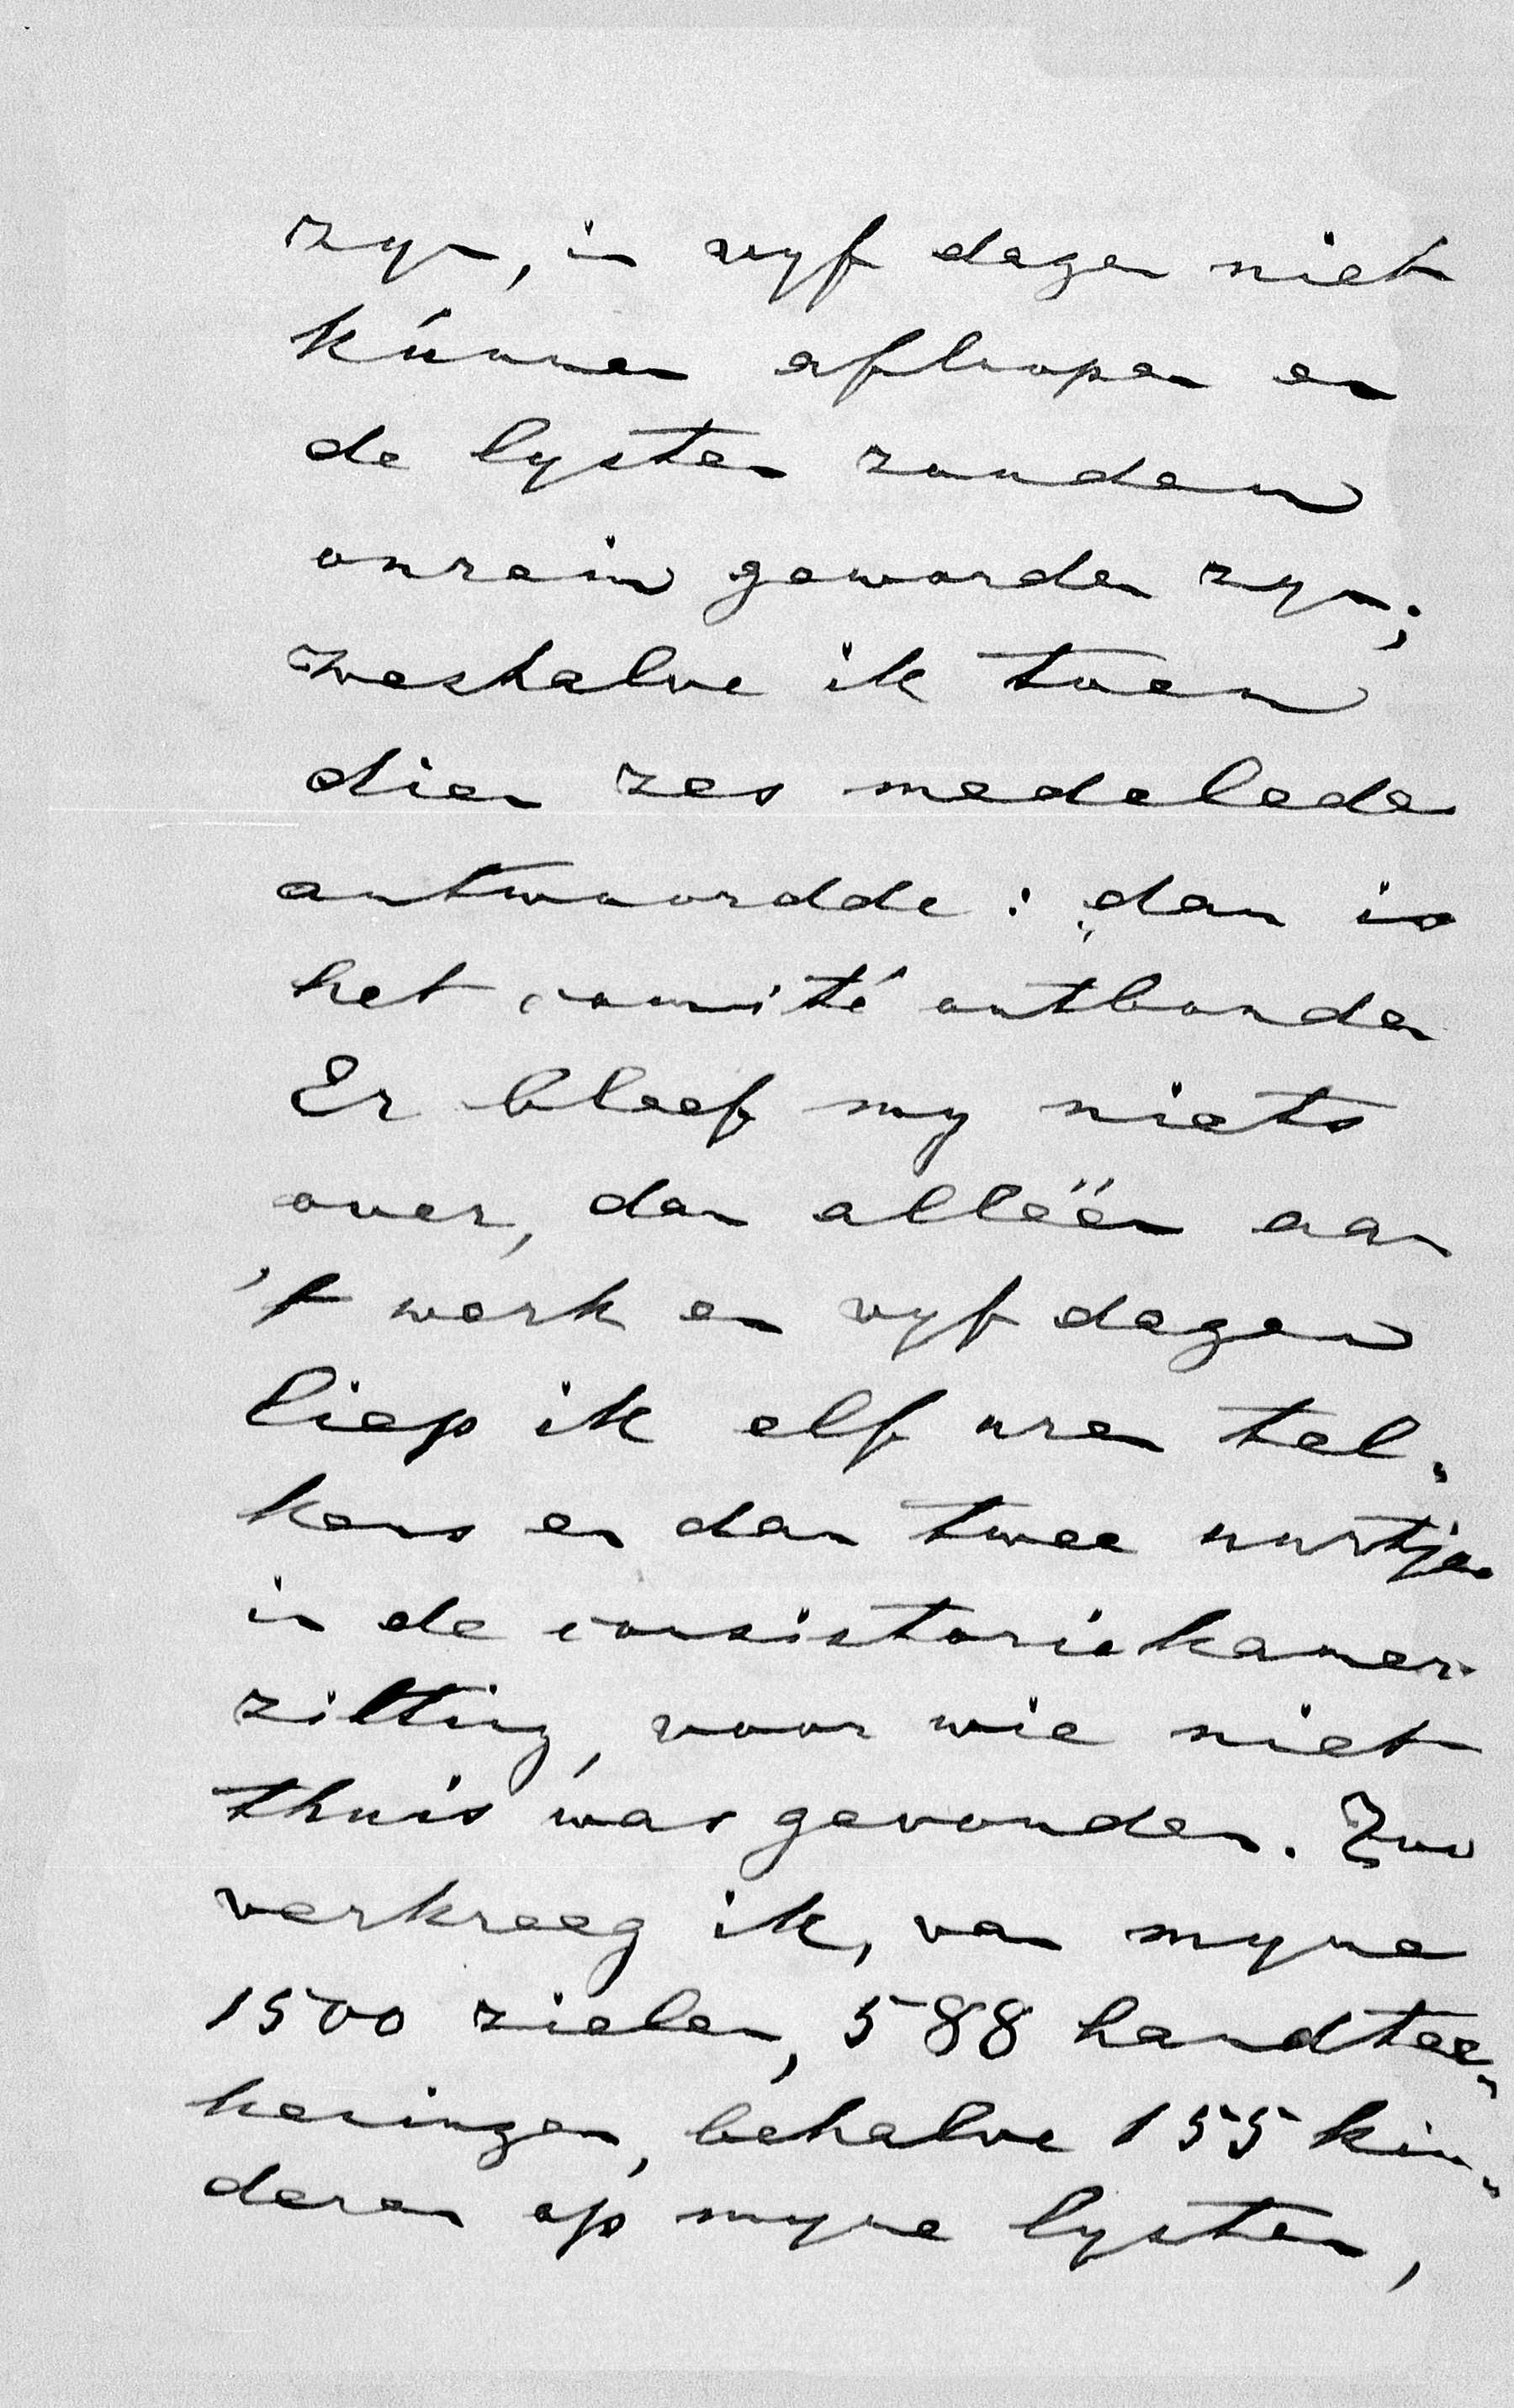 zyn, in vyf dagen niet
kúnnen afloopen en
de lysten zouden
onrein geworden zyn;
weshalve ik toen
dien zes medeleden
antwoordde: „dan is
het comité ontbonden
Er bleef my niets
over, dan alléén aan
't werk en vyf dagen
liep ik elf uren tel„
kens en dan twee uurtjes
in de consistoriekamer
zitting, voor wie niet
thuis was gevonden. Zoo
verkreeg ik, van myne
1500 zielen, 588 handtee„
keningen, behalve 155 kin„
deren op myne lysten,